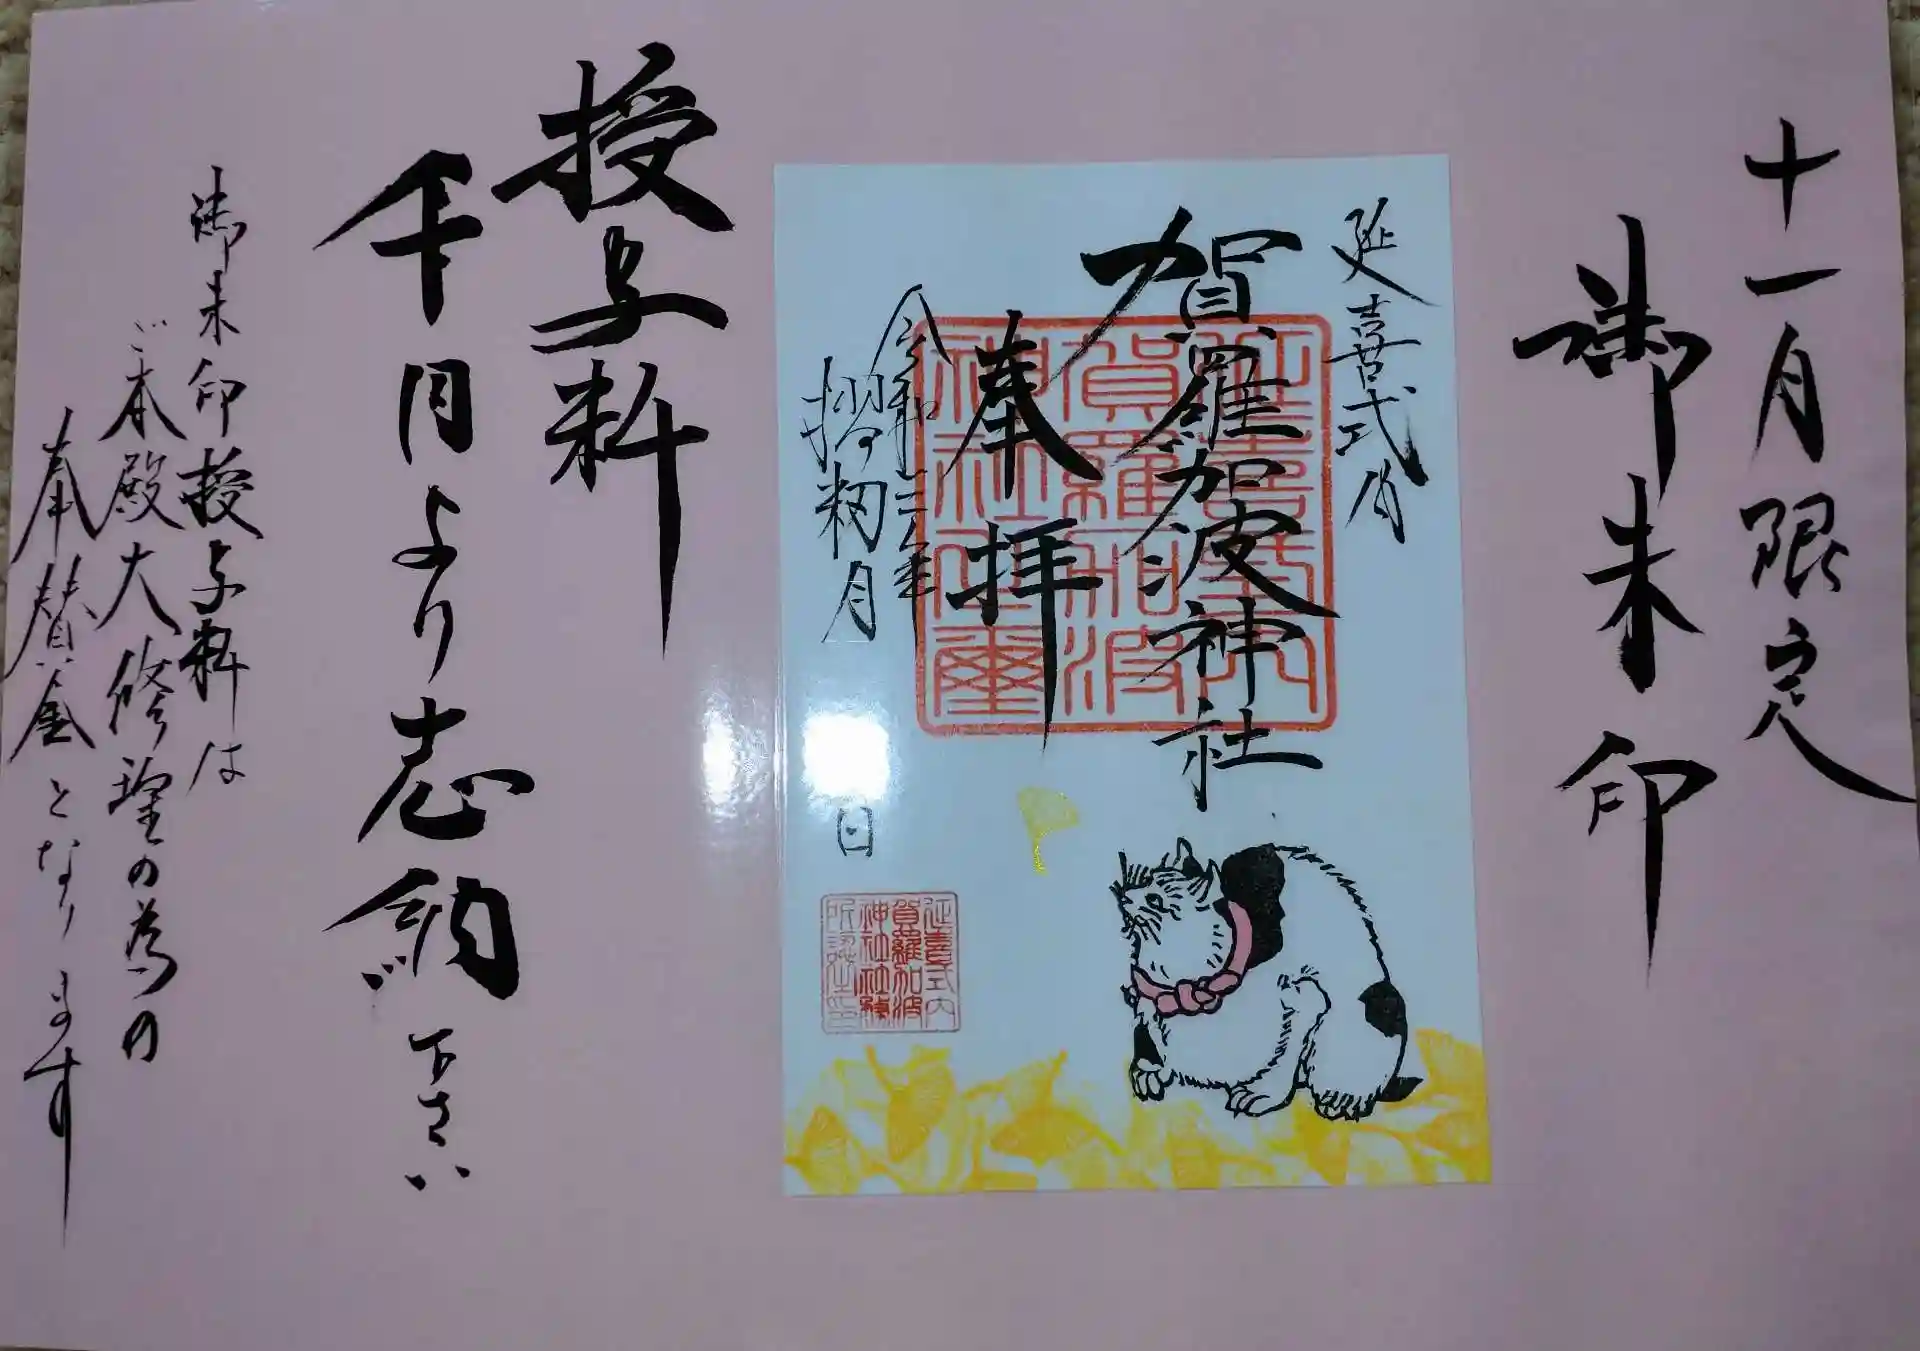 十一月限定
御朱印
延喜式内
賀羅加波神社
奉拝
令和二年
摺籾月
日
延喜式内
賀羅加波
神社社務
所認生印
授与料
千円より志納下さい
御朱印授与料は
ご本殿大修理の為の
奉賛金となります